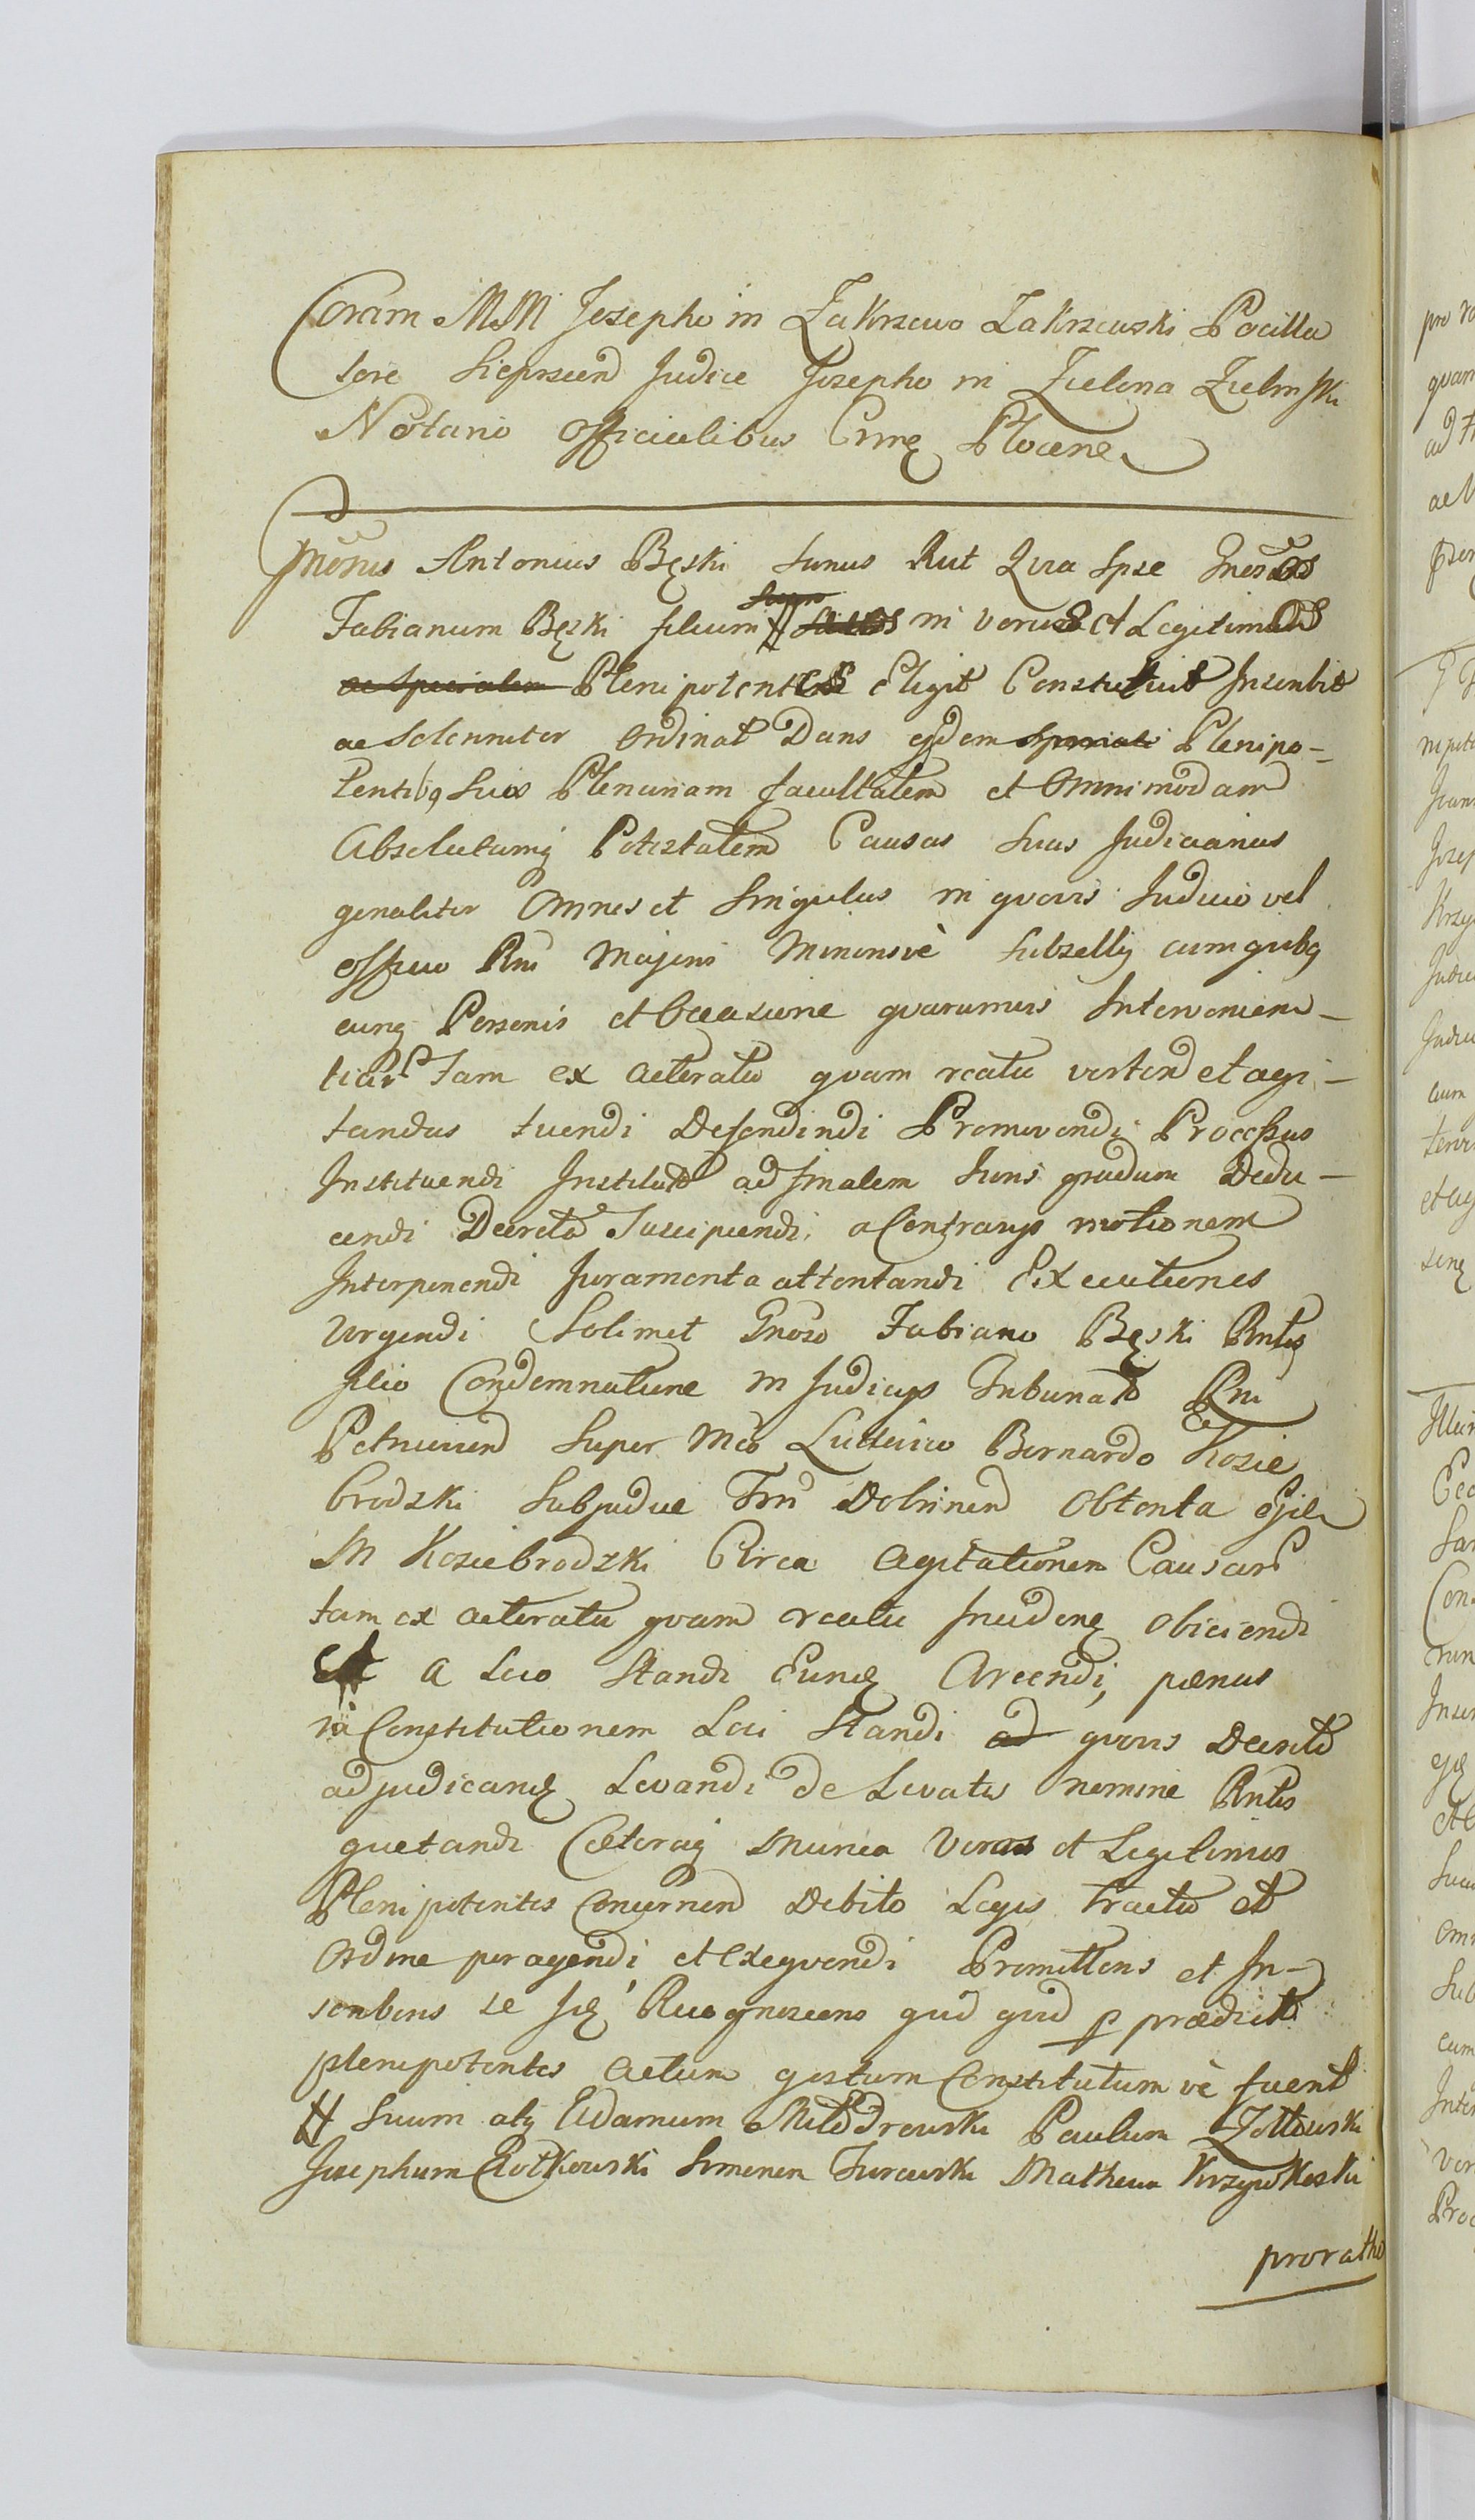 Coram MM Josepho in Zakrzewo Zakrzewski Pocilla
tore Sieprscen Judice Josepho in Zielona Zielinski
Notario Officialibus Crnę Plocene
Gnosus Antonius Bęski Sanus Aut Qvia Ipse Gnosos
Fabianum Bęski filium # in veros et Legitimos
ac specialem Plenipotentes Eligit Constituit Inscribit
ac Solenniter Ordinat Dans ejsdem speciali Plenipo-
tentibq Suis Plenariam facultatem et Omnimodam
Absolutamq Potestatem Causas Suas Judiciarias
genaliter Omnes et Singulas in qvovis Judicio vel
officio Rni Majoris Minorisvè Subsellij cum qvibq
cunq Personis et Occasione qvarumvis Intervenien-
tiar Tam ex acteratu qvam reatu verten et agi-
tandas tuendi Defendendi Promovendi Processus
Instituendi Institut ad finalem Juris gradum Dedu-
cendi Decreta Suscipiendi, a Contrarijs motionem
Interponendi Juramenta attentandi Executiones
Urgendi Solimet Gnoso Fabiano Bęski Rntis
filio Condemnatione in Judicijs Tribunal Rni
Petricovien Super Mco Ludovico Bernardo Kozie
brodzki Subjudice Trri Dobrinen Obtenta
M Koziebrodzki Circa Agitationem Causar
tam ex acteratu qvam reatu Obiciendi
Et a Loco Standi Eundę Arcendi, pœnas
rõ Constitutionem Loci Standi ad qvovis Decreto
adjudicandę Levandi de Levatis nomine Rntis
qvietandi Cæteraq Munia Veros et Legitimos
Plenipotentes Concernen Debito Legis Tractu et
Ordine peragendi et Exeqvendi Promittens et In-
scribens se Recognoscens qvid qvid p prædict
plenipotentes Actum gestum Constitutum vè fuerit
# Suum atq Adamum Miłodrowski Paulum Zołtowski
Josephum Rotkowski Simonem Turowski Matheum Krzywkoski
proratho